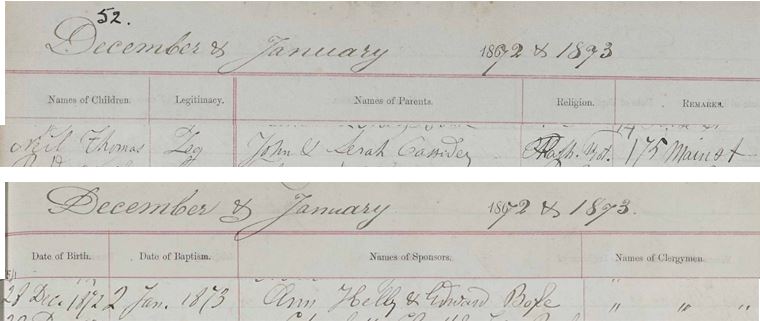 52.
December & January 1872 & 1873
Names of Children. Legitimacy. Names of Parents. Religion. REMARKS.
Neil Thomas Leg John & Sarah Cassidy Cath. 175 Main st
December & January 1872 & 1873.
Date of Birth. Date of Baptism. Names of Sponsors. Names of Clergymen.
28 Dec. 1872 2 Jan. 1873 Ann Helly & Edward Boyle " " "